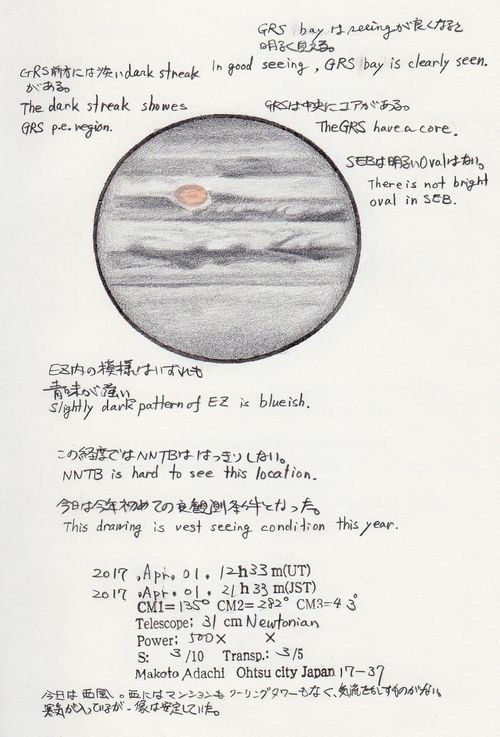 GRS bay はseeingが良くなると
明るく見える。
In good seeing, GRS bay is clearly seen.
GRS前方には淡いdark streak
がある。
The dark streak showes
GRS p.e. region.
GRSは中央にコアがある。
The GRS have a core.
SEBは明るいOvalはない。
There is not bright
oval in SEB.
EZ内の模様はいずれも
青味が強い
Slightly dark pattern of EZ is blueish.
この経度ではNNTBははっきりしない。
NNTB is hard to see this location.
今日は今年初めての良観測条件となった。
This drawing is vest seeing condition this year.
2017 .Apr. 01. 12h33m(UT)
2017 .Apr. 01. 21h33m(JST)
CM1=135° CM2=282° CM3=43°
Telescope; 31 cm Newtonian
Power; 500× ×
S: 3/10 Transp.: 3/5
Makoto Adachi Ohtsu city Japan 17-37
今日は西風。西にはマンションもクーリングタワーもなく、気流をみだすものがない。
寒気が入っているが、像は安定していた。